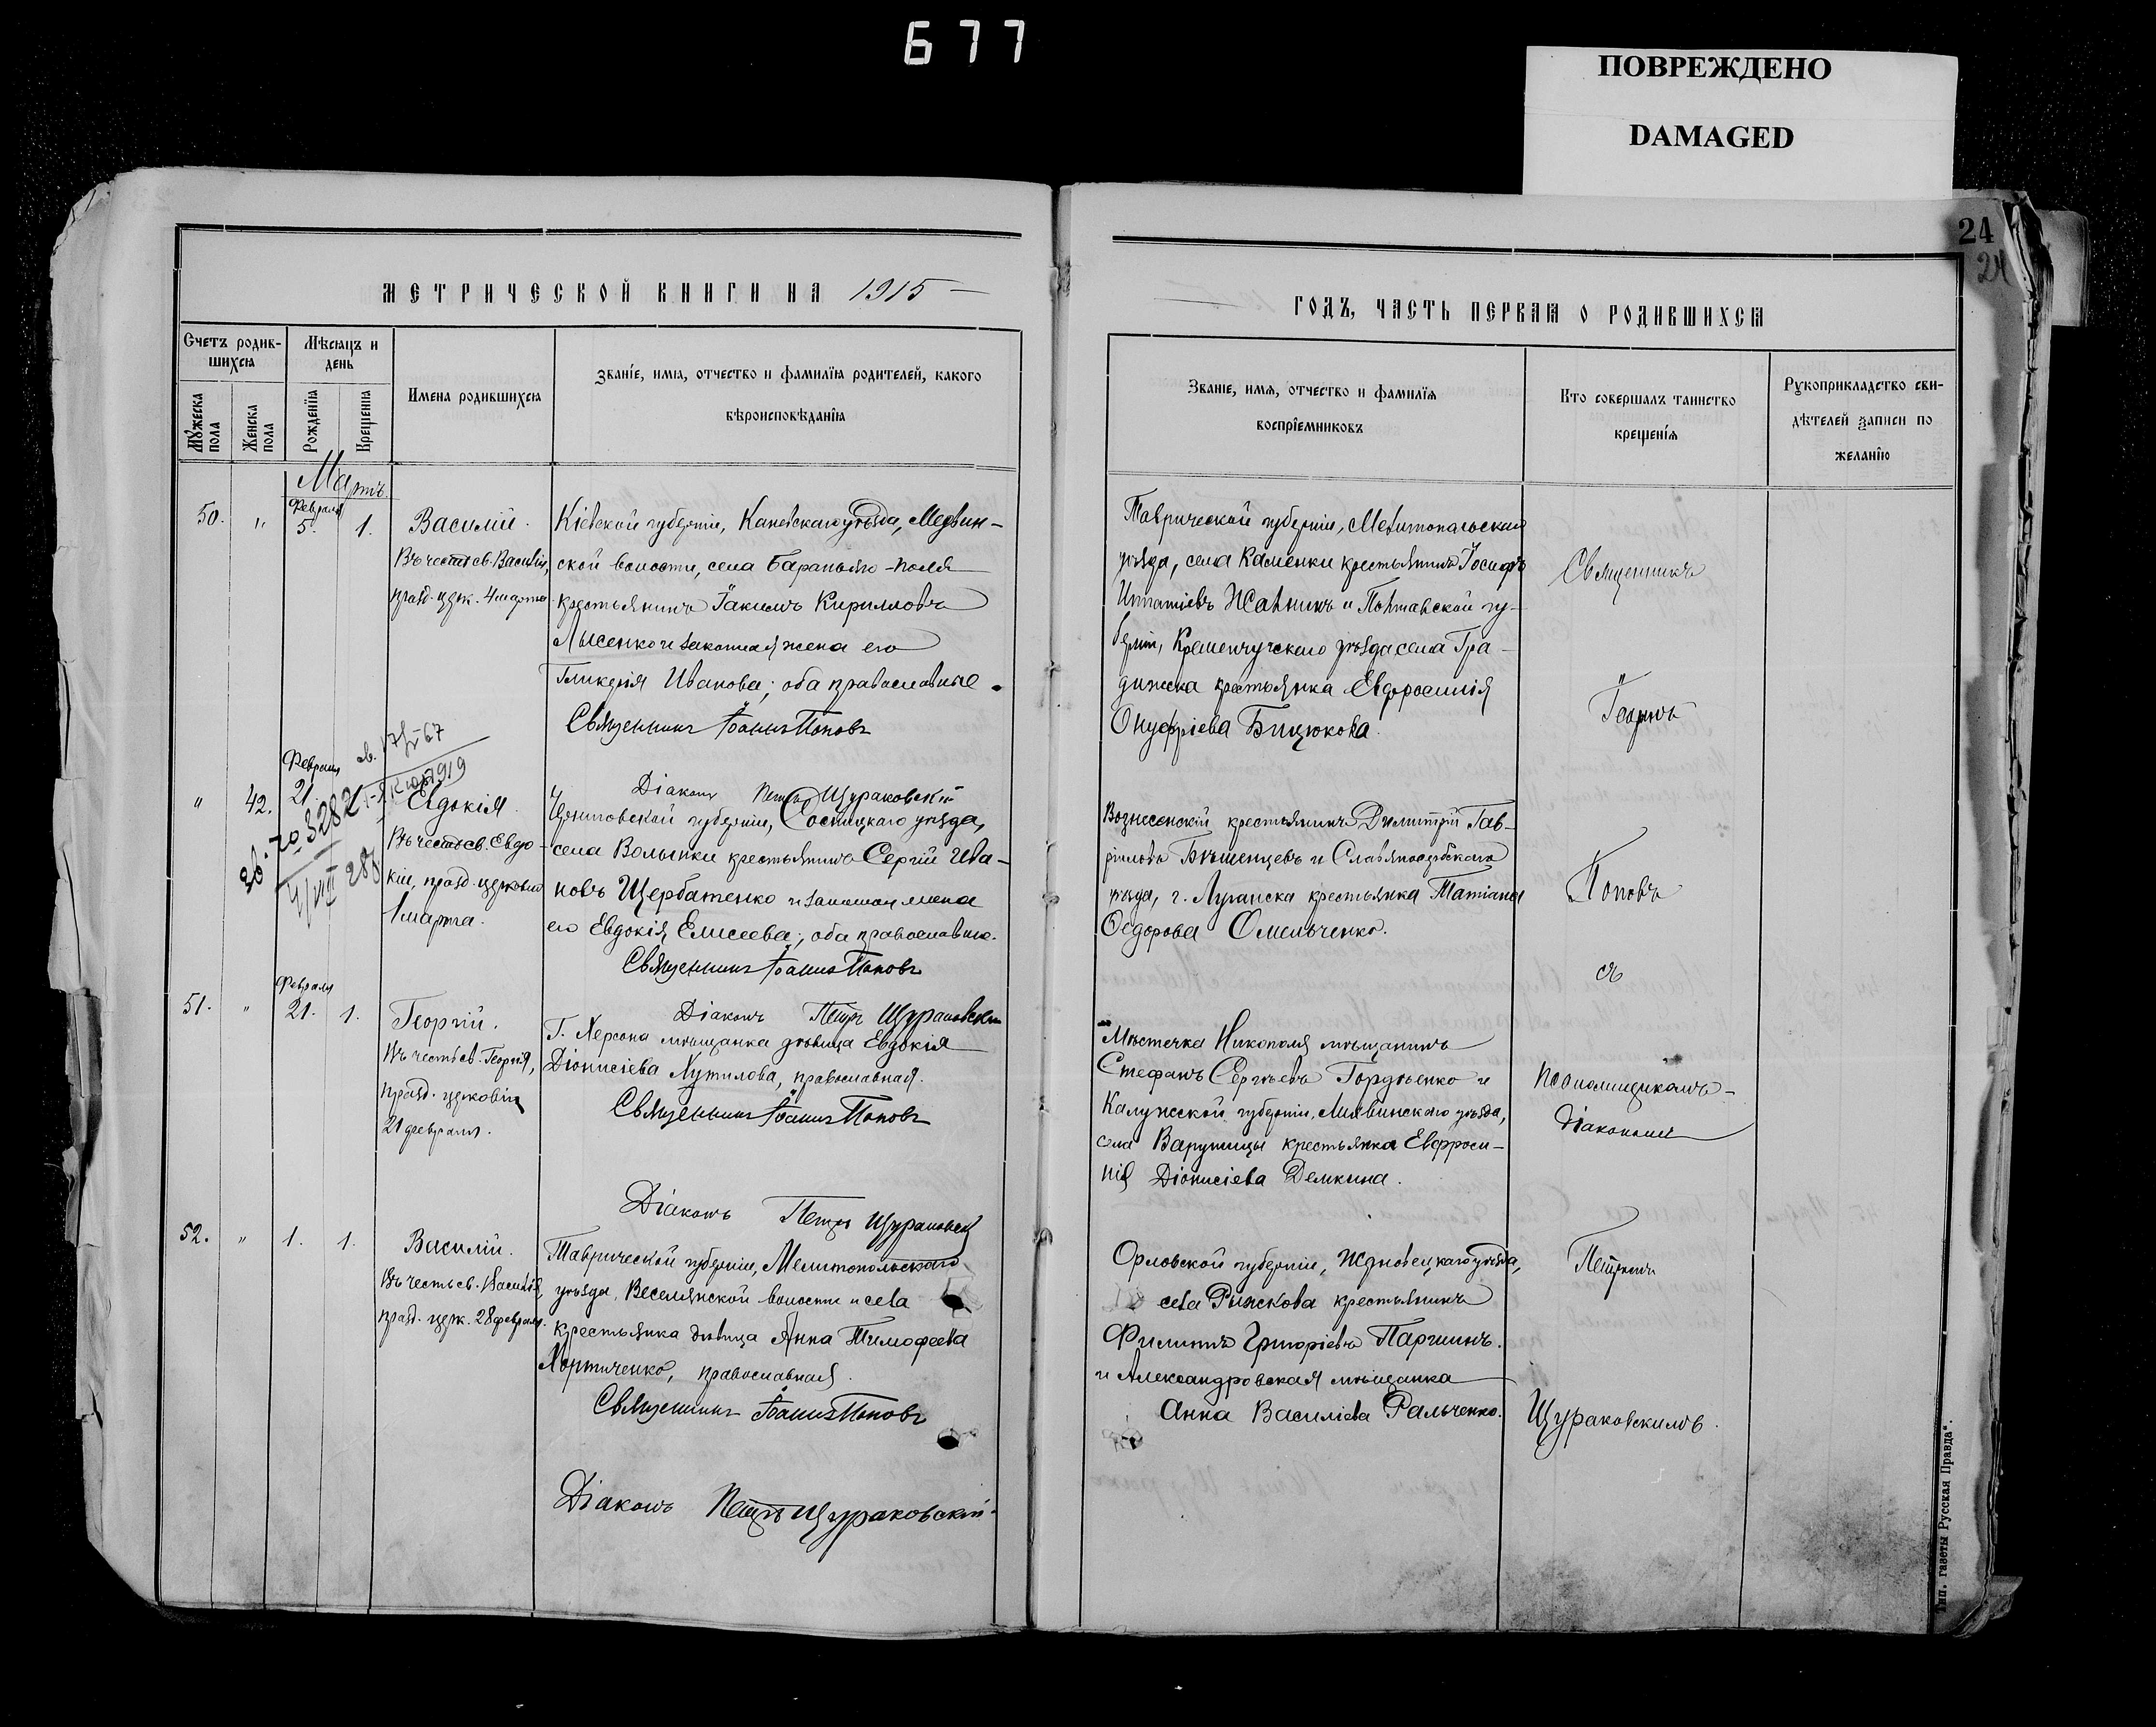 677
ПОВРЕЖДЕНО
DAMAGED
24
24
МЕТРИЧЕСКОЙ КНИГИ НА 1915
Счетъ родив-
шихся
Мѣсяцъ и
день
Мужеска
пола
Женска
пола
Рожденія
Крещенія
Имена родившихся
Званіе, имя, отчество и фамилія родителей, какого
вѣроисповѣданія
Мартъ.
50. " Февраля 5. 1.
Василій.
Въ честь св. Василія,
празд. церк. 4 марта
Кіевской губерніи, Каневскаго уѣзда, Медвин-
ской волости, села Бараньяго-поля
крестьянинъ Іакимъ Кирилловъ
Лысенко и законная жена его
Гликерія Иванова; оба православные.
Священникъ Іоаннъ Поповъ
Діаконъ Петръ Щураковскій
" 42. Февраля 21.
Евдокія.
Въ честь св. Евдо-
кіи, празд. церковію
1 марта.
Черниговской губерніи, Сосницкаго уѣзда,
села Волынки крестьянинъ Сергій Ива-
новъ Щербатенко и законная жена
его Евдокія Елисеева; оба православные.
Священникъ Іоаннъ Поповъ
Діаконъ Петръ Щураковскій
51. " Февраля 21. 1.
Георгій.
Въ честь св. Георгія,
празд. церковію
21 февраля.
Г. Херсона мѣщанка дѣвица Евдокія
Діонисіева Путилова, православная.
Священникъ Іоаннъ Поповъ
Діаконъ Петръ Щураковскій
52. " 1. 1.
Василій.
Въ честь св. Василія,
празд. церк. 28 февраля.
Таврической губерніи, Мелитопольскаго
уѣзда, Веселянской волости и села
крестьянка дѣвица Анна Тимофеева
Хортиченко, православная.
Священникъ Іоаннъ Поповъ
Діаконъ Петръ Щураковскій
ГОДЪ, ЧАСТЬ ПЕРВАЯ О РОДИВШИХСЯ
Званіе, имя, отчество и фамилія
воспріемниковъ
Кто совершалъ таинство
крещенія
Рукоприкладство сви-
дѣтелей записи по
желанію
Таврической губерніи, Мелитопольскаго
уѣзда, села Каменки крестьянинъ Іосифъ
Игнатіевъ Жалнинъ и Полтавской гу-
берніи, Кременчугскаго уѣзда села Гра-
дижска крестьянка Евфросинія
Онуфріева Бицюкова.
Вознесенскій крестьянинъ Димитрій Гав-
ріиловъ Бѣшенцевъ и Славяносербскаго
уѣзда, г. Луганска крестьянка Татіана
Ѳедорова Омельченко.
Мѣстечка Никополя мѣщанинъ
Стефанъ Сергѣевъ Гордѣенко и
Калужской губерніи, Лихвинскаго уѣзда,
села Варушицы крестьянка Евфроси-
нія Діонисіева Демкина.
Орловской губерніи,
села Рыжкова крестьянинъ
Филиппъ Григоріевъ Паршинъ.
и Александровская мѣщанка
Анна Василіева Ральченко.
Священникъ
Георгій
Поповъ
съ
псаломщикомъ-
діакономъ
Петромъ
Щураковскимъ.
Тип. газеты „Русская Правда“.